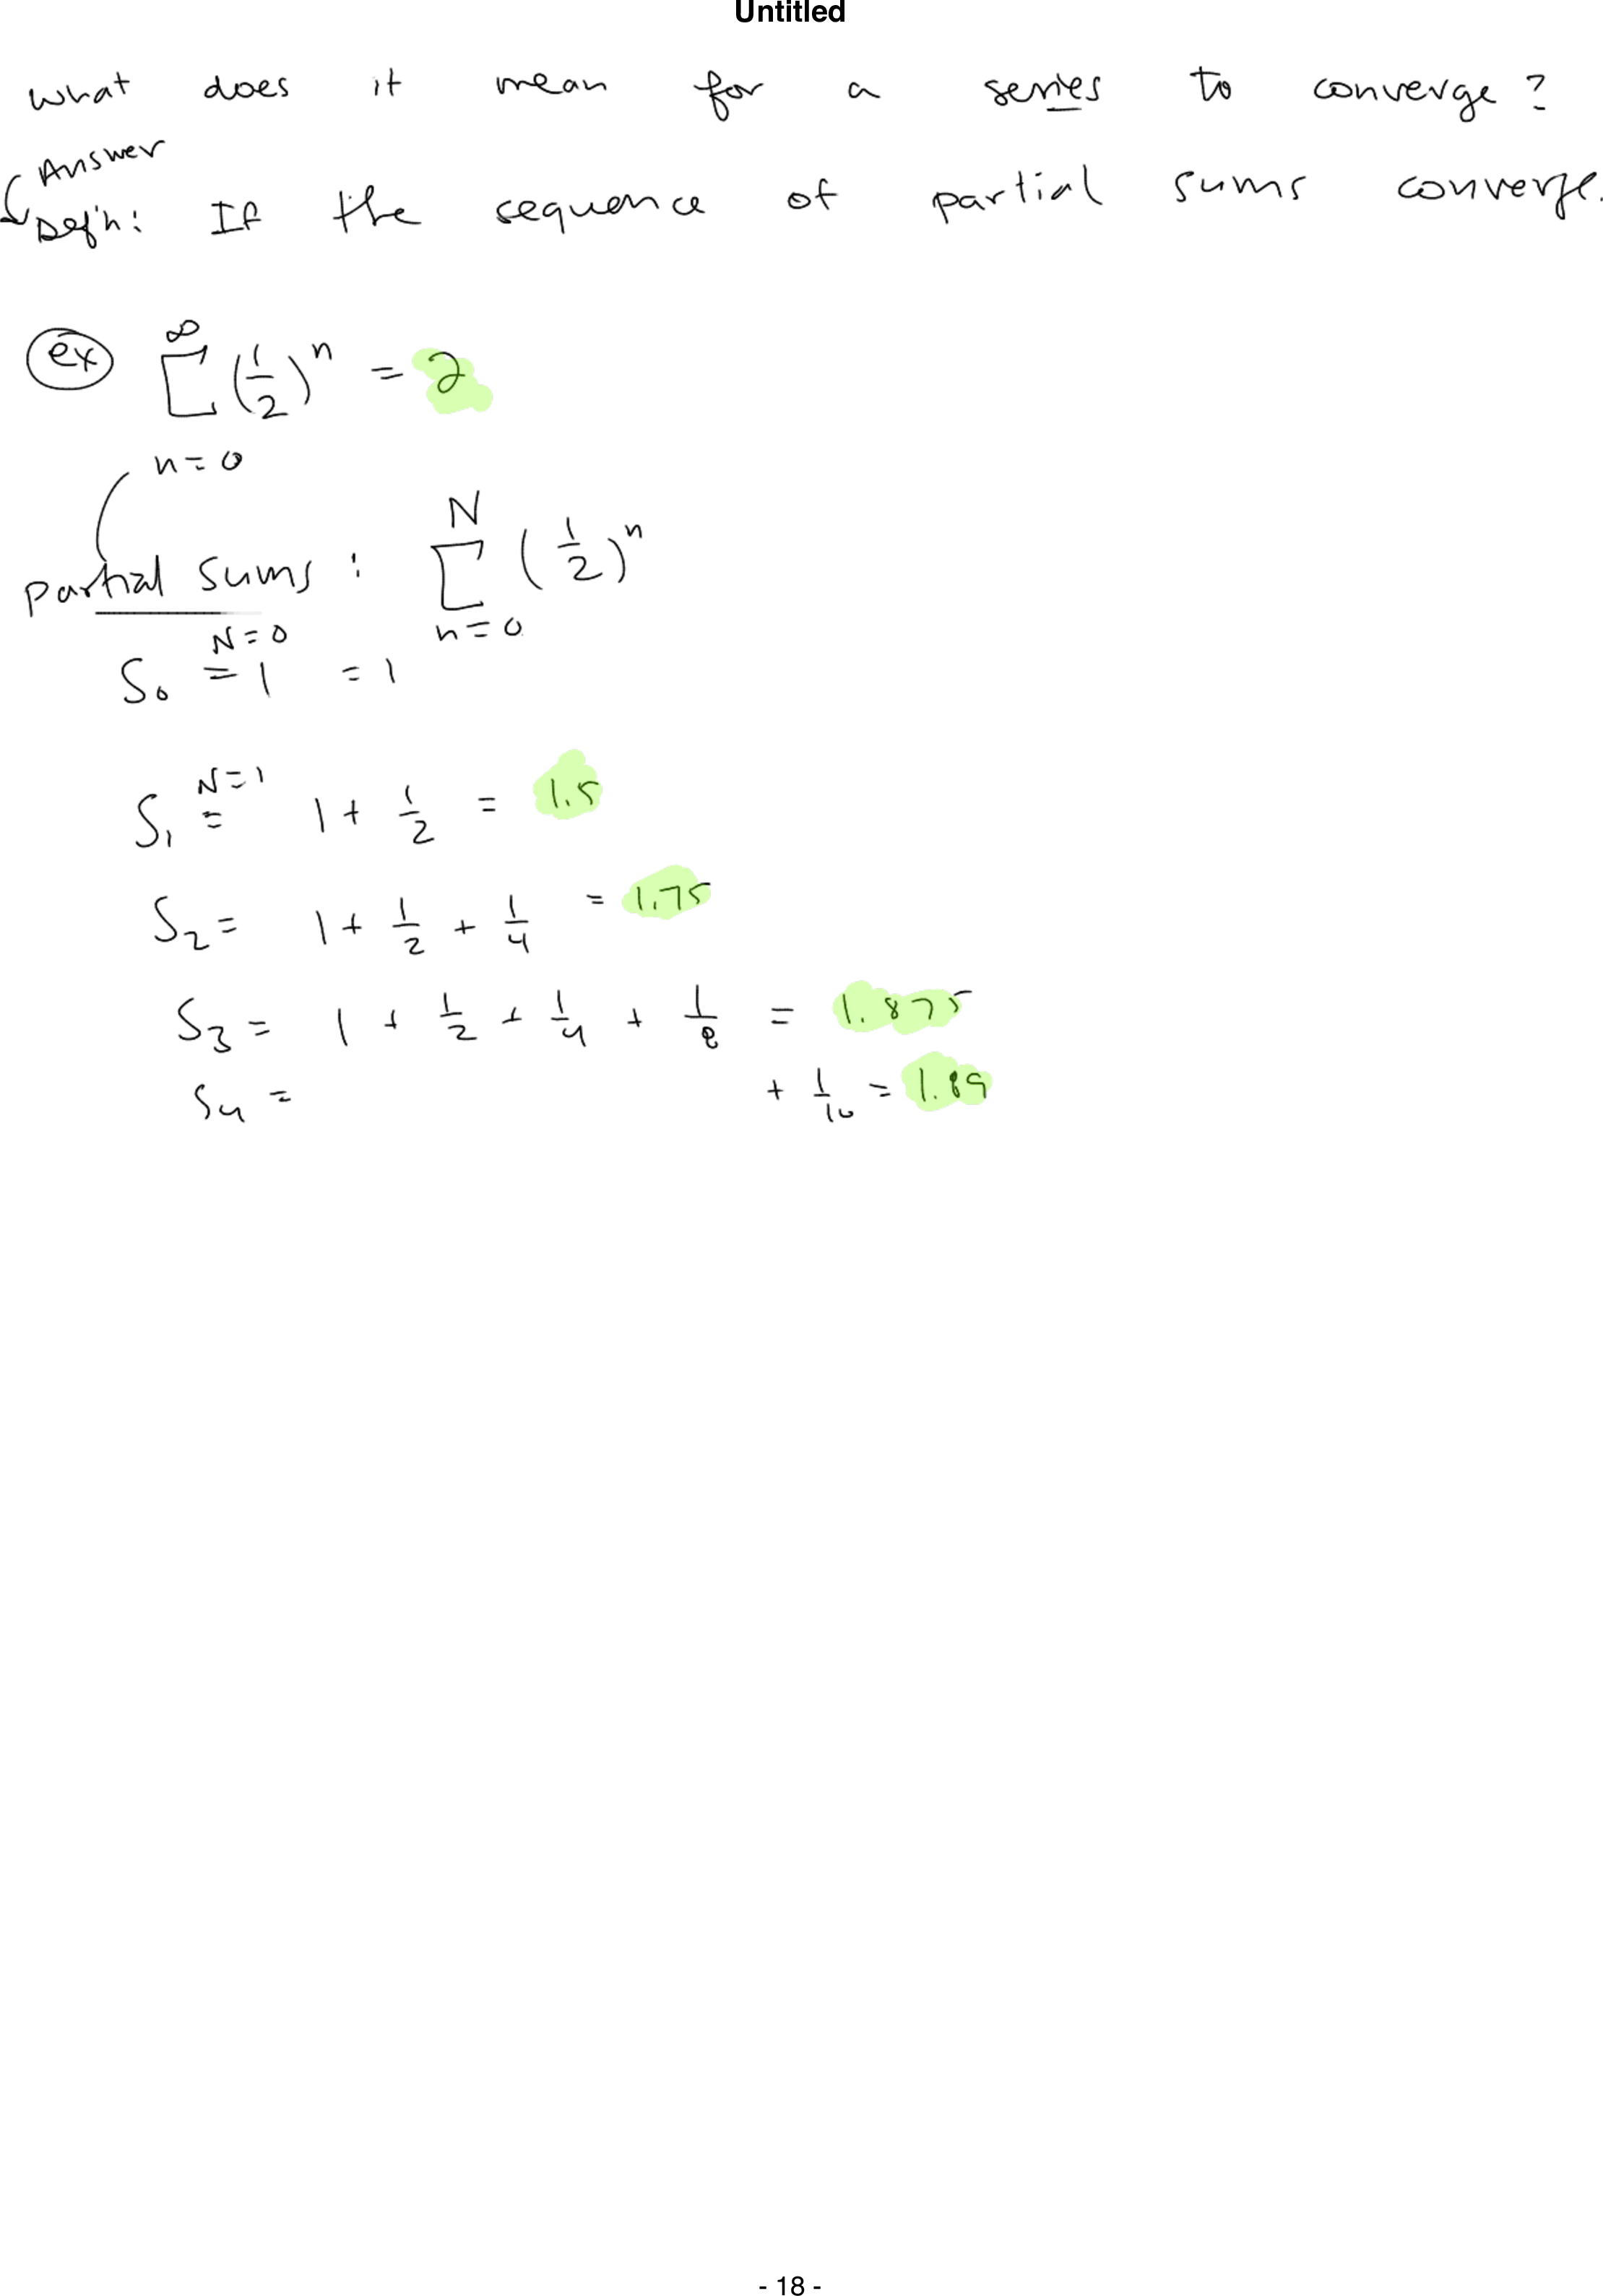 Untitled
what does it mean for a series to converge?
Answer
Def'n: If the sequence of partial sums converge.
ex ∞ ∑ n=0 (1/2)^n = 2
partial sums : N ∑ n=0 (1/2)^n
N=0
S₀ = 1 = 1
N=1
S₁ = 1 + 1/2 = 1.5
S₂ = 1 + 1/2 + 1/4 = 1.75
S₃ = 1 + 1/2 + 1/4 + 1/8 = 1.875
S₄ = + 1/16 = 1.89
- 18 -